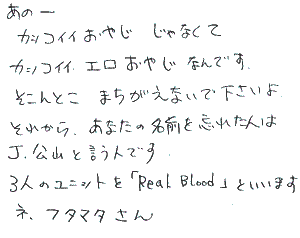 あのー
カッコイイおやじ じゃなくて
カッコイイ エロおやじ なんです.
そこんとこ まちがえないで下さいよ
それから, あなたの名前を忘れた人は
J.公山と言う人です
3人のユニットを「Real Blood」といいます
ネ、フタマタさん